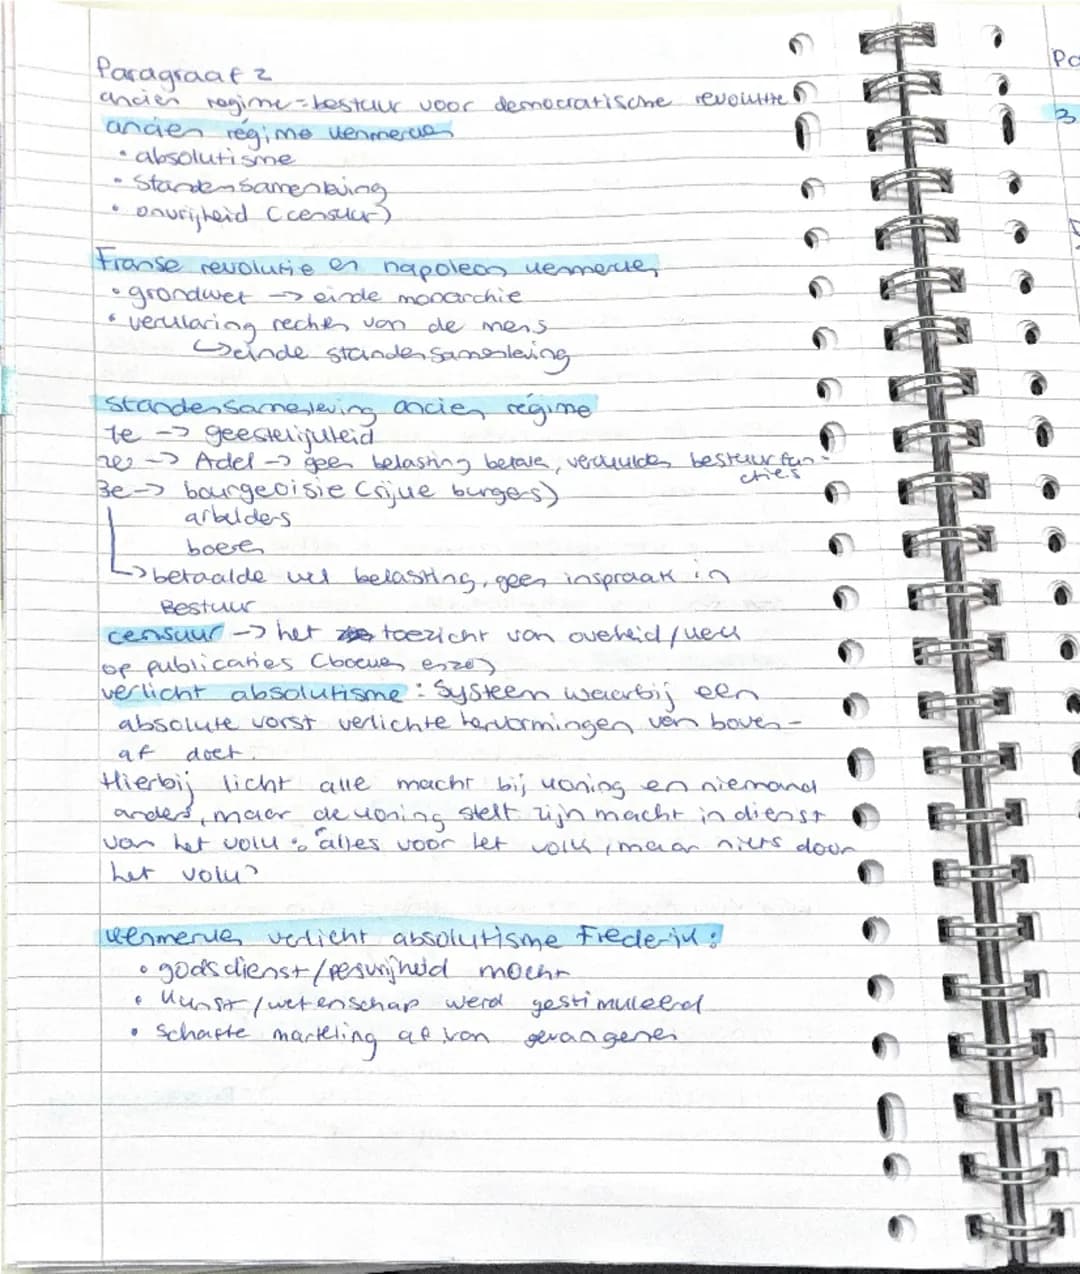 Paragraaf 2
ancien regime = bestuur voor democratische revolutie
ancien régime kenmerken
• absolutisme
• Standensamenleving
• onvrijheid (censuur)
Franse revolutie en napoleon kenmerken
• grondwet -> einde monarchie
• verklaring rechten van de mens
↳ einde standensamenleving
Standensamenleving ancien régime
1e -> geestelijkheid
2e -> Adel -> geen belasting betalen, vervulden bestuurfun-
cties
3e -> bourgeoisie (rijke burgers)
arbeiders
boeren
-> betaalde wel belasting, geen inspraak in
Bestuur
censuur -> het toezicht van overheid/kerk
op publicaties (boeken enzo)
verlicht absolutisme : Systeem waarbij een
absolute vorst verlichte hervormingen van boven-
af doet.
Hierbij licht alle macht bij koning en niemand
anders, maar de koning stelt zijn macht in dienst
van het volk : "alles voor het volk, maar niets door
het volk"
kenmerken verlicht absolutisme Frederik :
• godsdienst/persvrijheid mocht
• kunst/wetenschap werd gestimuleerd
• Schafte marteling af van gevangenen
Pa
3